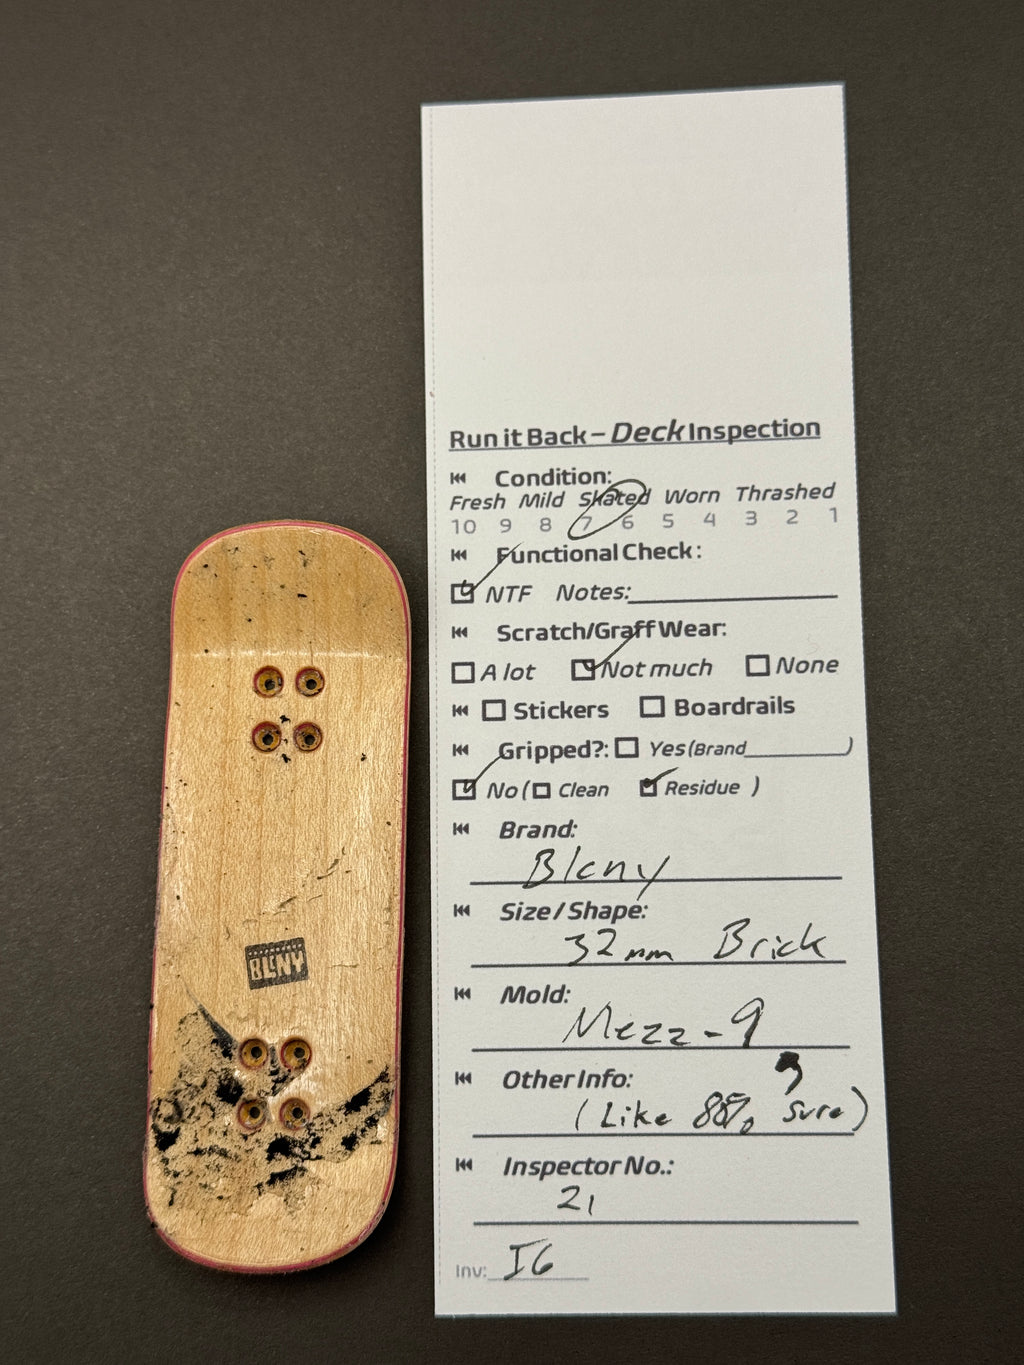 Run it Back – Deck Inspection
Condition:
Fresh Mild Skated Worn Thrashed
10 9 8 7 6 5 4 3 2 1
Functional Check:
NTF Notes:
Scratch/Graff Wear:
A lot Not much None
Stickers Boardrails
Gripped?: Yes (Brand )
No ( Clean Residue )
Brand:
Blcny
Size / Shape:
32mm Brick
Mold:
Mezz-9
Other Info:
(Like 88% sure)
Inspector No.:
21
Inv: I6
BLCNY